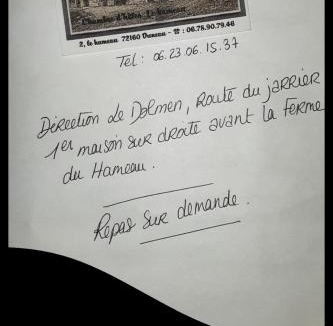 Chambre d'hôtes, Le hameau
2, le hameau 72160 Duneau - ☎ : 06.78.90.79.46
Tel : 06.23.06.15.37
Direction de Dolmen, Route du jarrier
1er maison sur droite avant la ferme
du Hameau.
Repas sur demande.